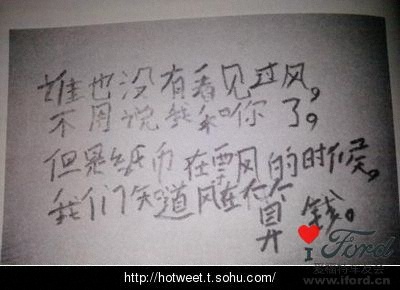 谁也没有看见过风,
不用说我和你了。
但是纸币在飘的时候,
我们知道风在算钱。
I iFord
爱福特车友会
www.iford.cn
http://hotweet.t.sohu.com